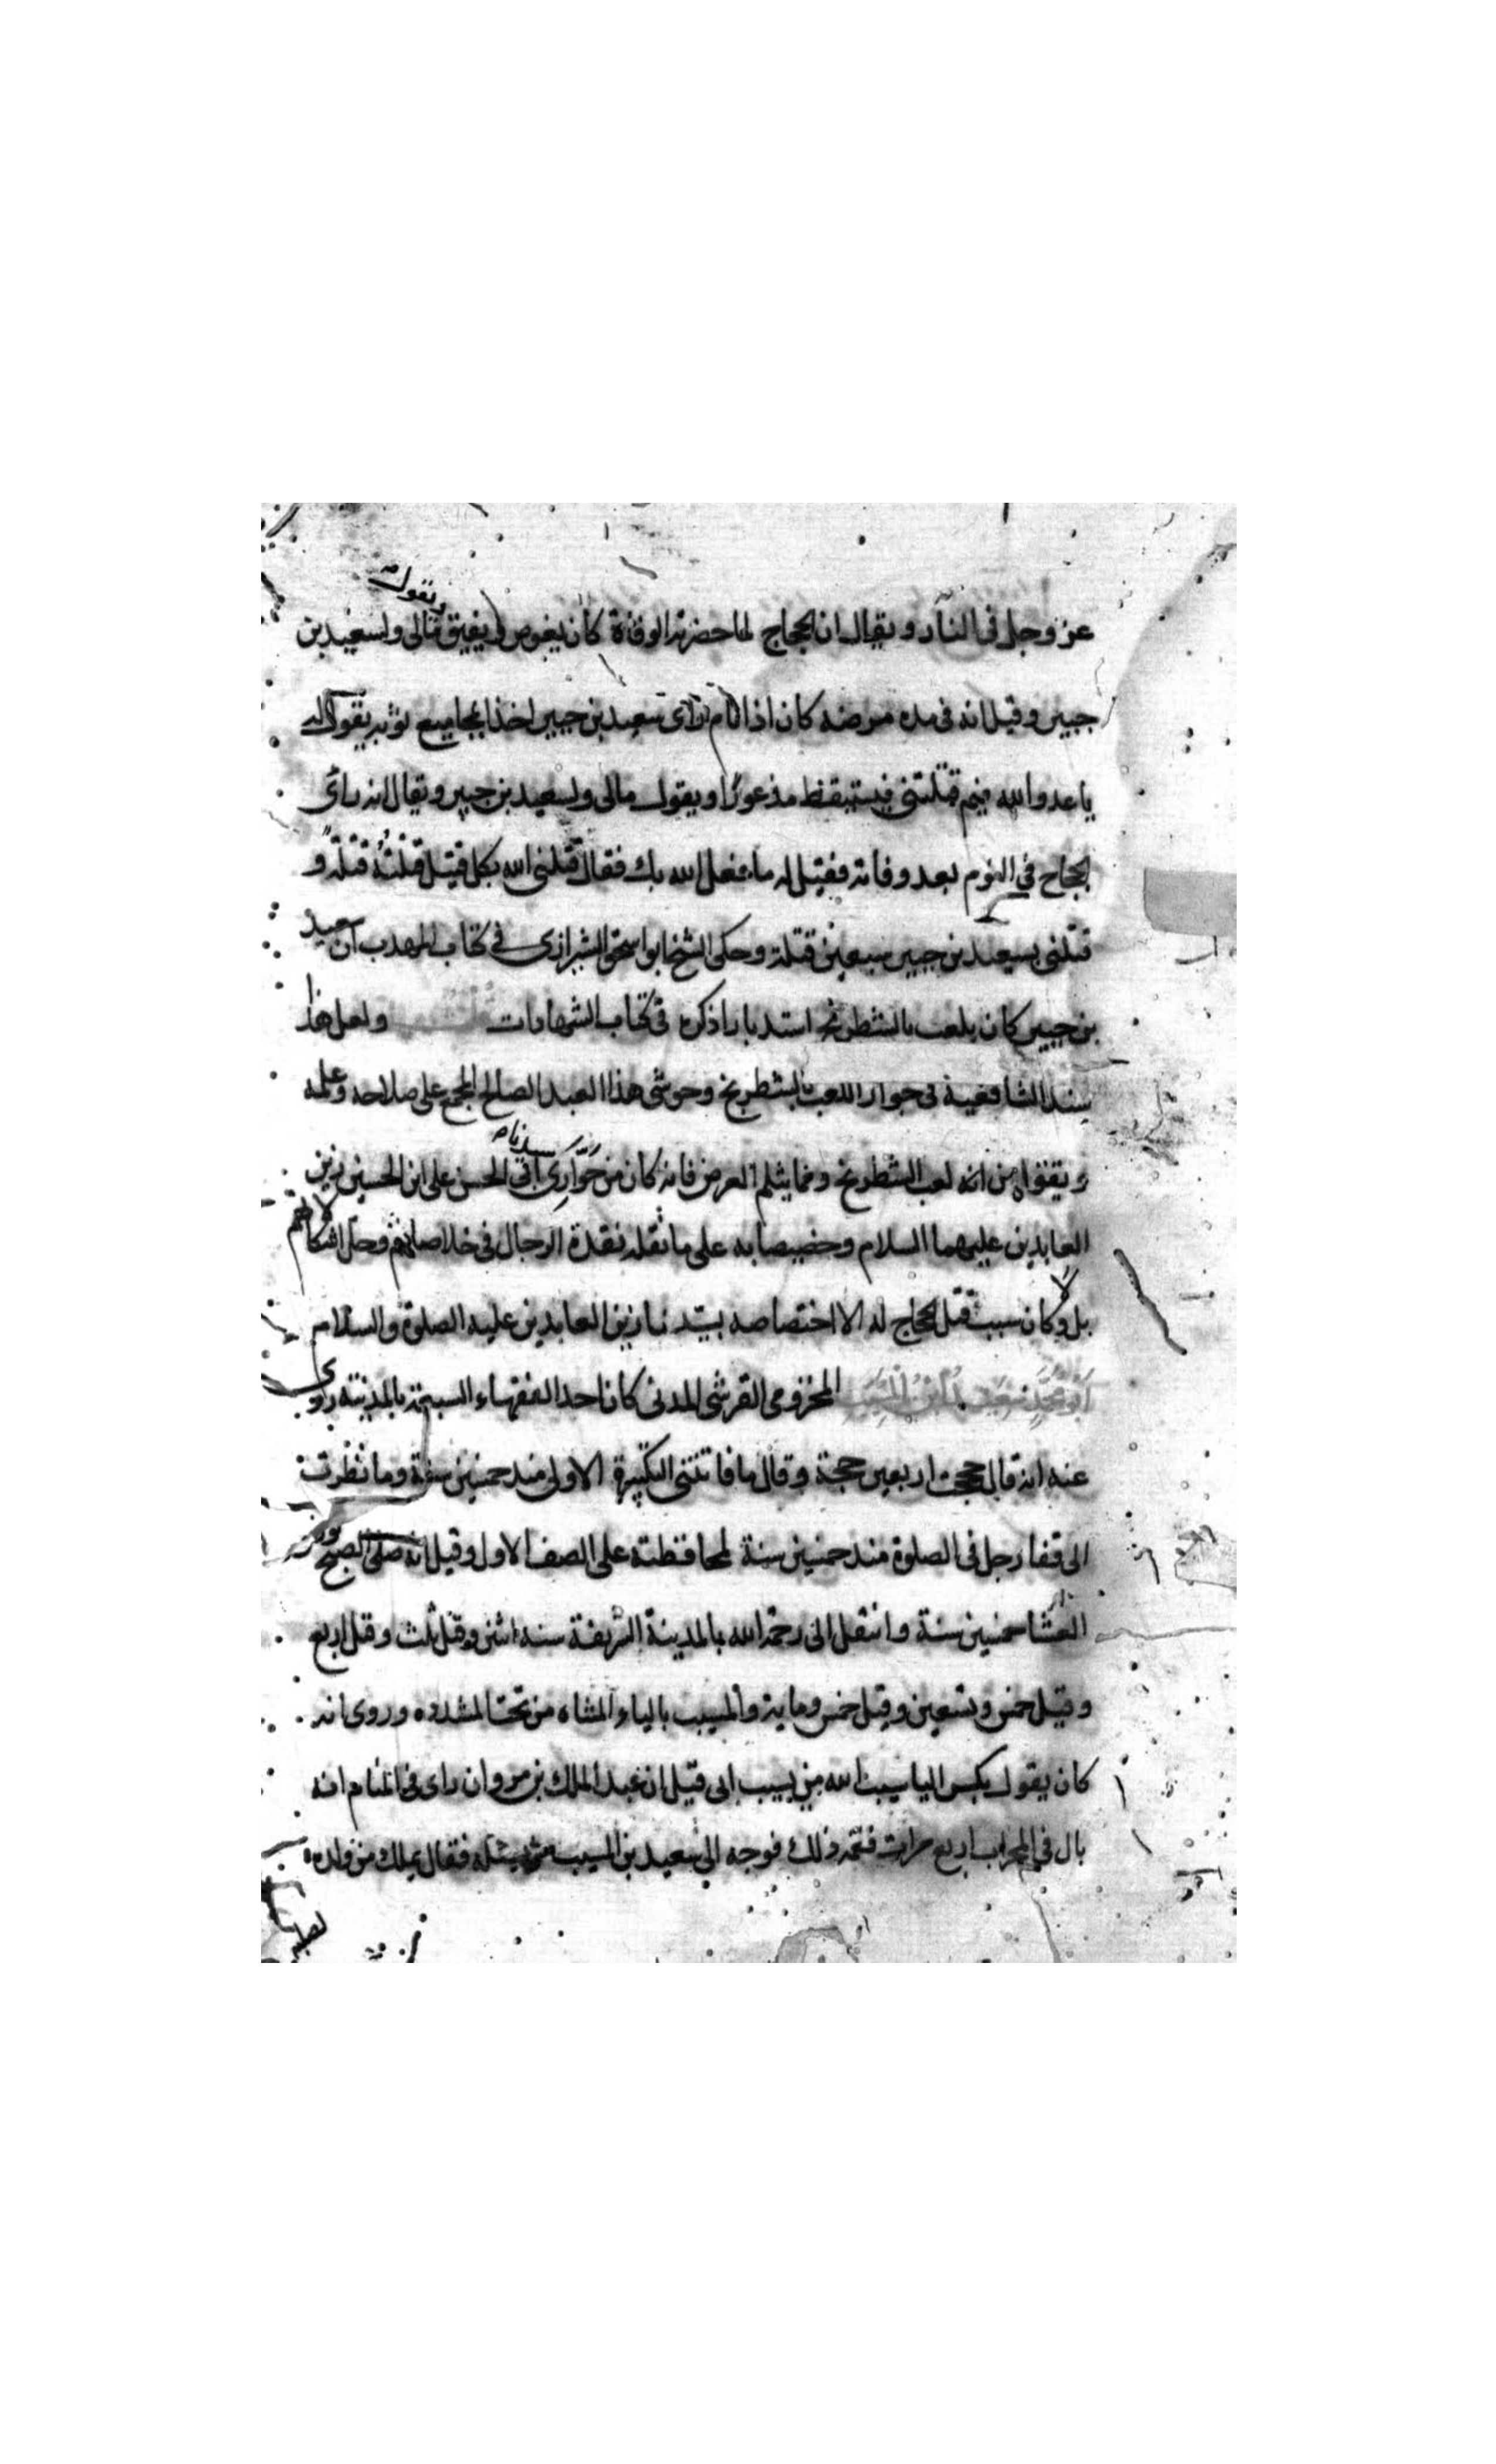 عز وجل فى النار ويقال ان الحجاج لما حضرته الوفاة كان يغوص ثم يفيق ويقول مالى ولسعيد بن
جبير وقيل انه فى مده مرضه كان اذا نام راى سعيد بن جبير اخذا بمجاميع ثوبه يقول له
يا عدو الله فيم قتلتنى فيستيقظ مذعورًا ويقول مالى ولسعيد بن جبير ويقال انه راى
الحجاج فى النوم بعد وفاته فقيل له ما فعل الله بك فقال قتلنى الله بكل قتيل قتلته قتلة و
قتلنى بسعيد بن جبير سبعين قتلة وحكى الشيخ ابو اسحق الشيرازى فى كتاب المهدب ان سعيد
بن جبير كان يلعب بالشطرنج استدبارا ذكره فى كتاب الشهادات ولعل هذا
سند الشافعية فى جواز اللعب بالشطرنج وحوشى هذا العبد الصالح المجمع على صلاحه وعلمه
وتقواه من انه لعب الشطرنج ومما يثلم العرض فانه كان من حوارى سيدنا ابى الحسن على ابن الحسين زين
العابدين عليهما السلام وخصيصا به على ما نقله نقدة الرجال فى خلاصاتهم وحل اشكالاتهم
بل وكان سبب قتل الحجاج له الا اختصاصه بسيدنا زين العابدين عليه الصلوة والسلام
ابو محمد سعيد بن المسيب المخزومى القرشى المدنى كان احد الفقهاء السبعة بالمدينة روى
عنه انه قال حججت اربعين حجة وقال ما فاتتنى التكبيرة الاولى منذ خمسين سنة وما نظرت
الى قفا رجل فى الصلوة منذ خمسين سنة لمحافظته على الصف الاول وقيل انه صلى الصبح بوضوء
العشا خمسين سنة وانتقل الى رحمة الله بالمدينة الشريفة سنه اثنين وقيل ثلث وقيل اربع
وقيل خمس وتسعين وقيل خمس وماية والمسيب بالياء المثناه من تحت المشدده وروى انه
كان يقول بكسر اليا سيب الله من يسيب ابى قيل ان عبد الملك بن مروان راى فى المنام انه
بال فى المحراب اربع مرات فغمه ذلك فوجه الى سعيد بن المسيب من يسئله فقال يملك من ولده